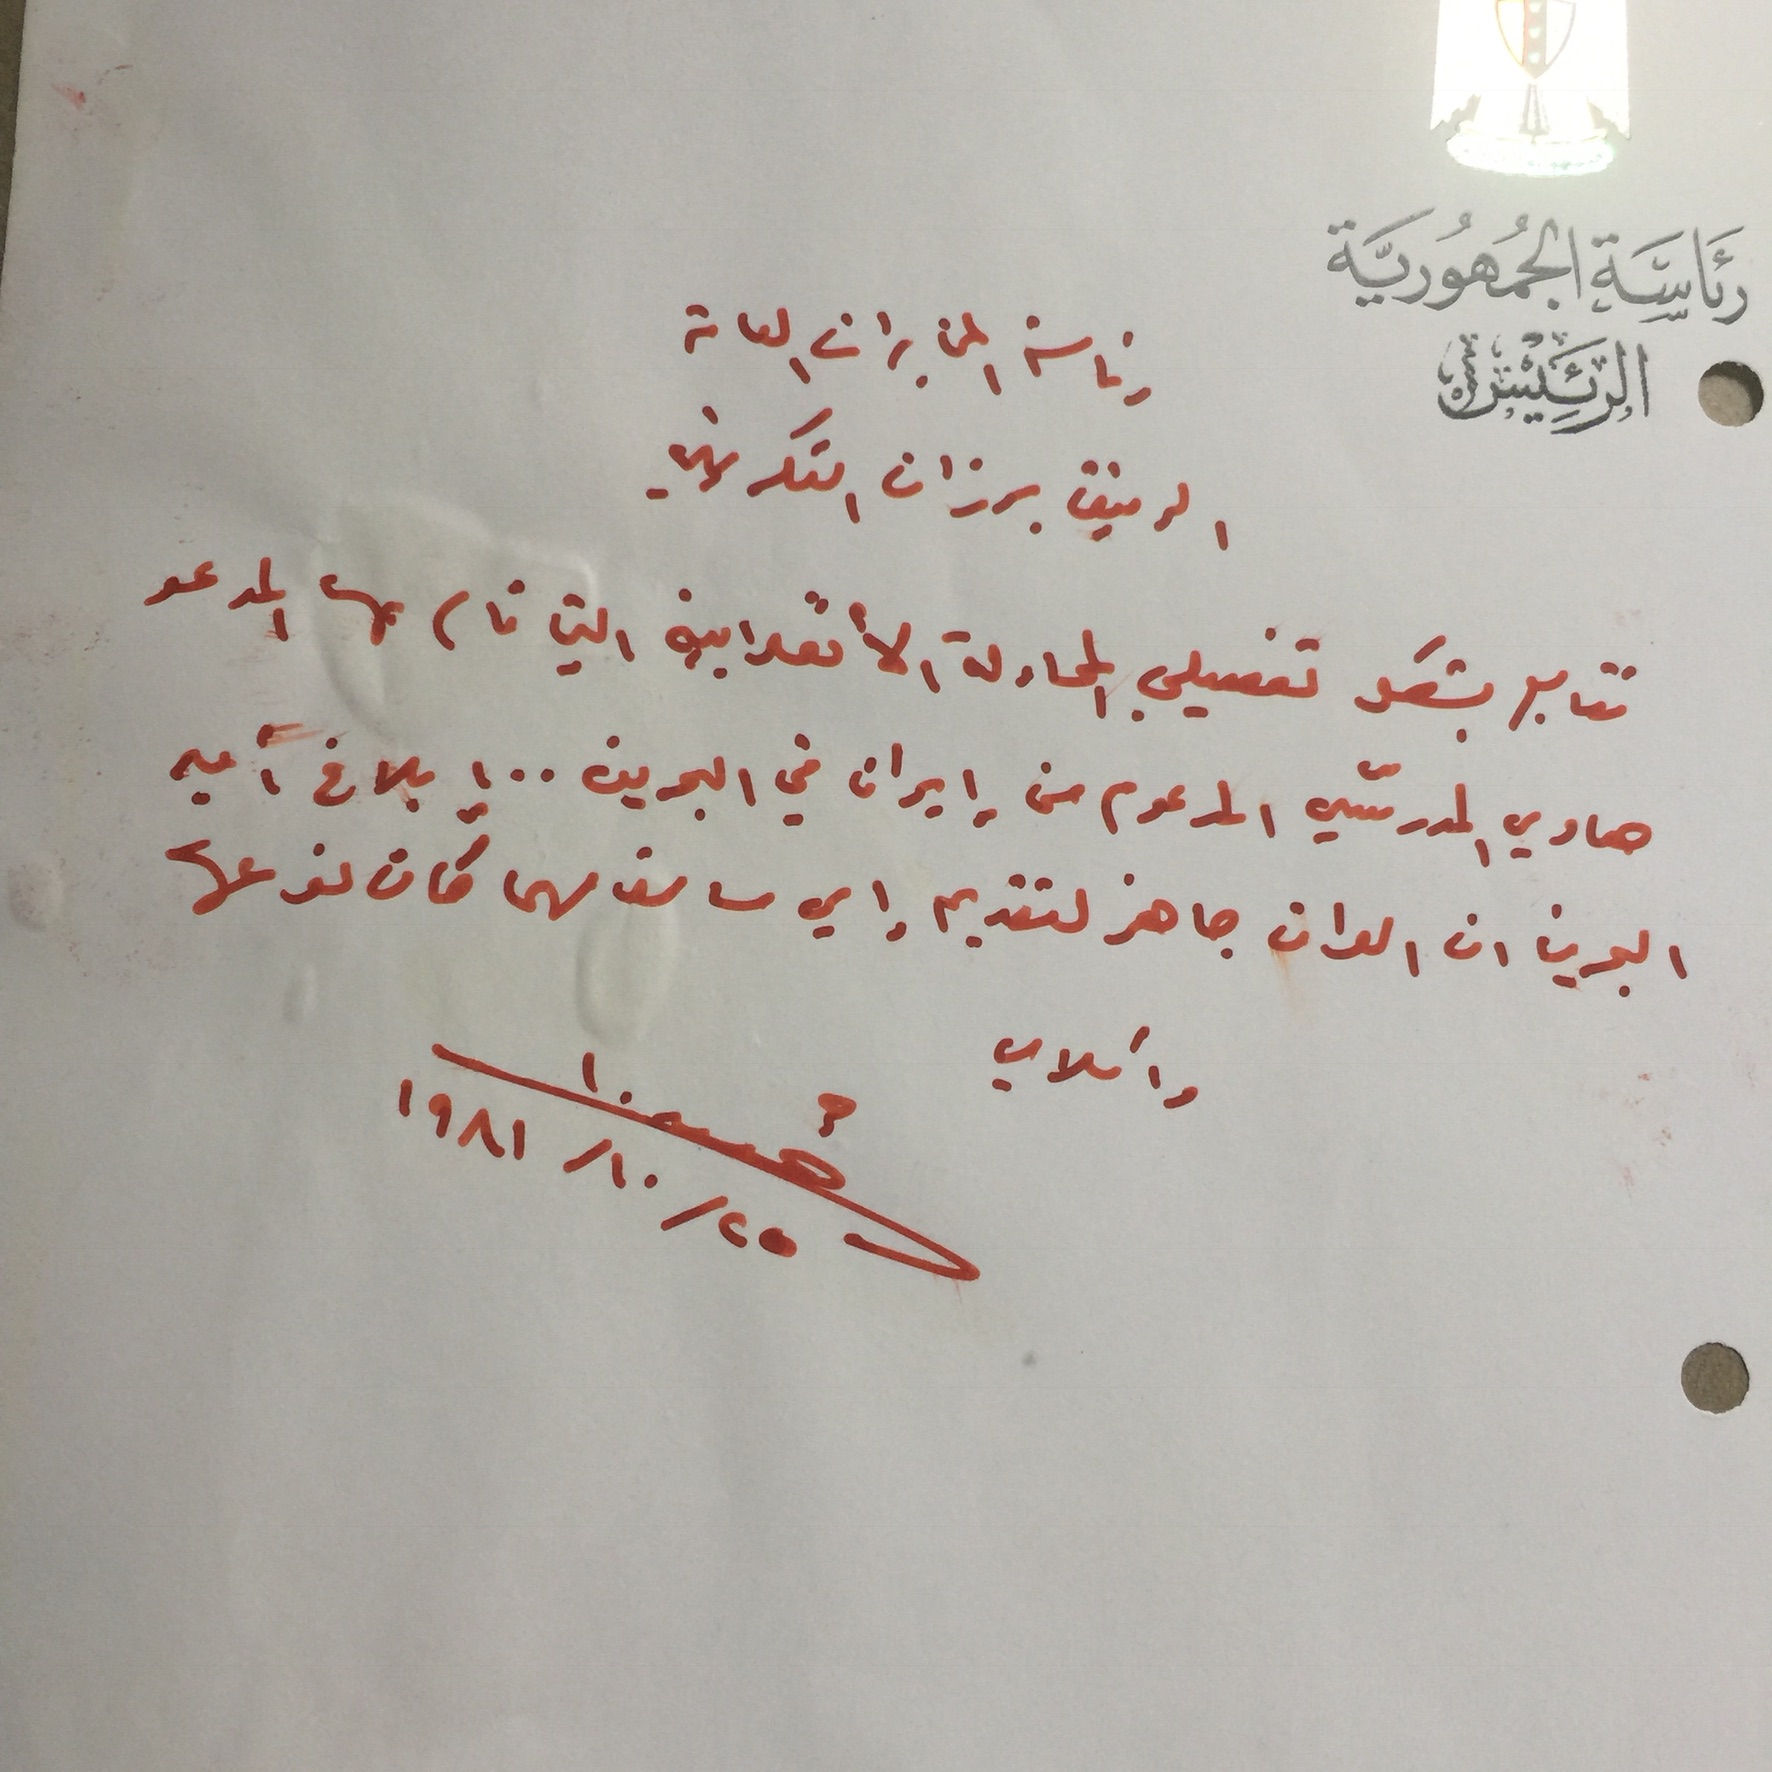 رئَاسَة الجُمْهُوريَّة
الرَئيسْ
رئاسة المخابرات العامة
الرفيق برزان التكريتي
تتابع بشكل تفصيلي المحاولة الأنقلابية التي قام بها المدعو
هادي المدرسّي المدعوم من إيران في البحرين .. إ بلاغ أمير
البحرين ان العراق جاهز لتقديم إي مساعدة مهما كان نوعها
وأسلامي
٢٥/ ١٠/ ١٩٨١